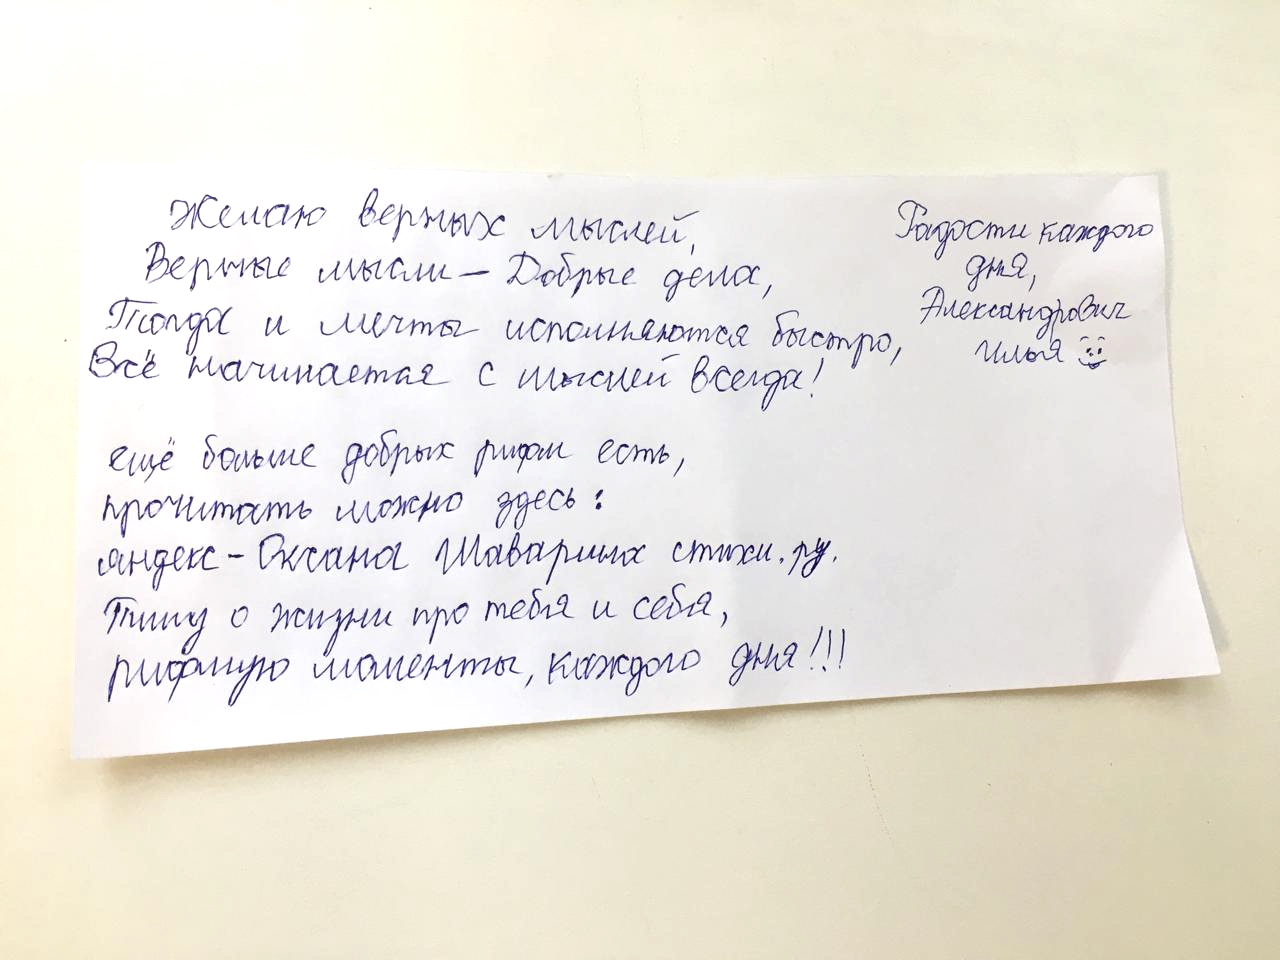 Желаю верных мыслей,
Верные мысли – Добрые дела,
Тогда и мечты исполняются быстро,
Всё начинается с мыслей всегда!
ещё больше добрых рифм есть,
прочитать можно здесь:
яндекс – Оксана Шаварина стихи.ру.
Пишу о жизни про тебя и себя,
рифмую моменты, каждого дня!!!
Радости каждого
дня,
Александрович
Илья